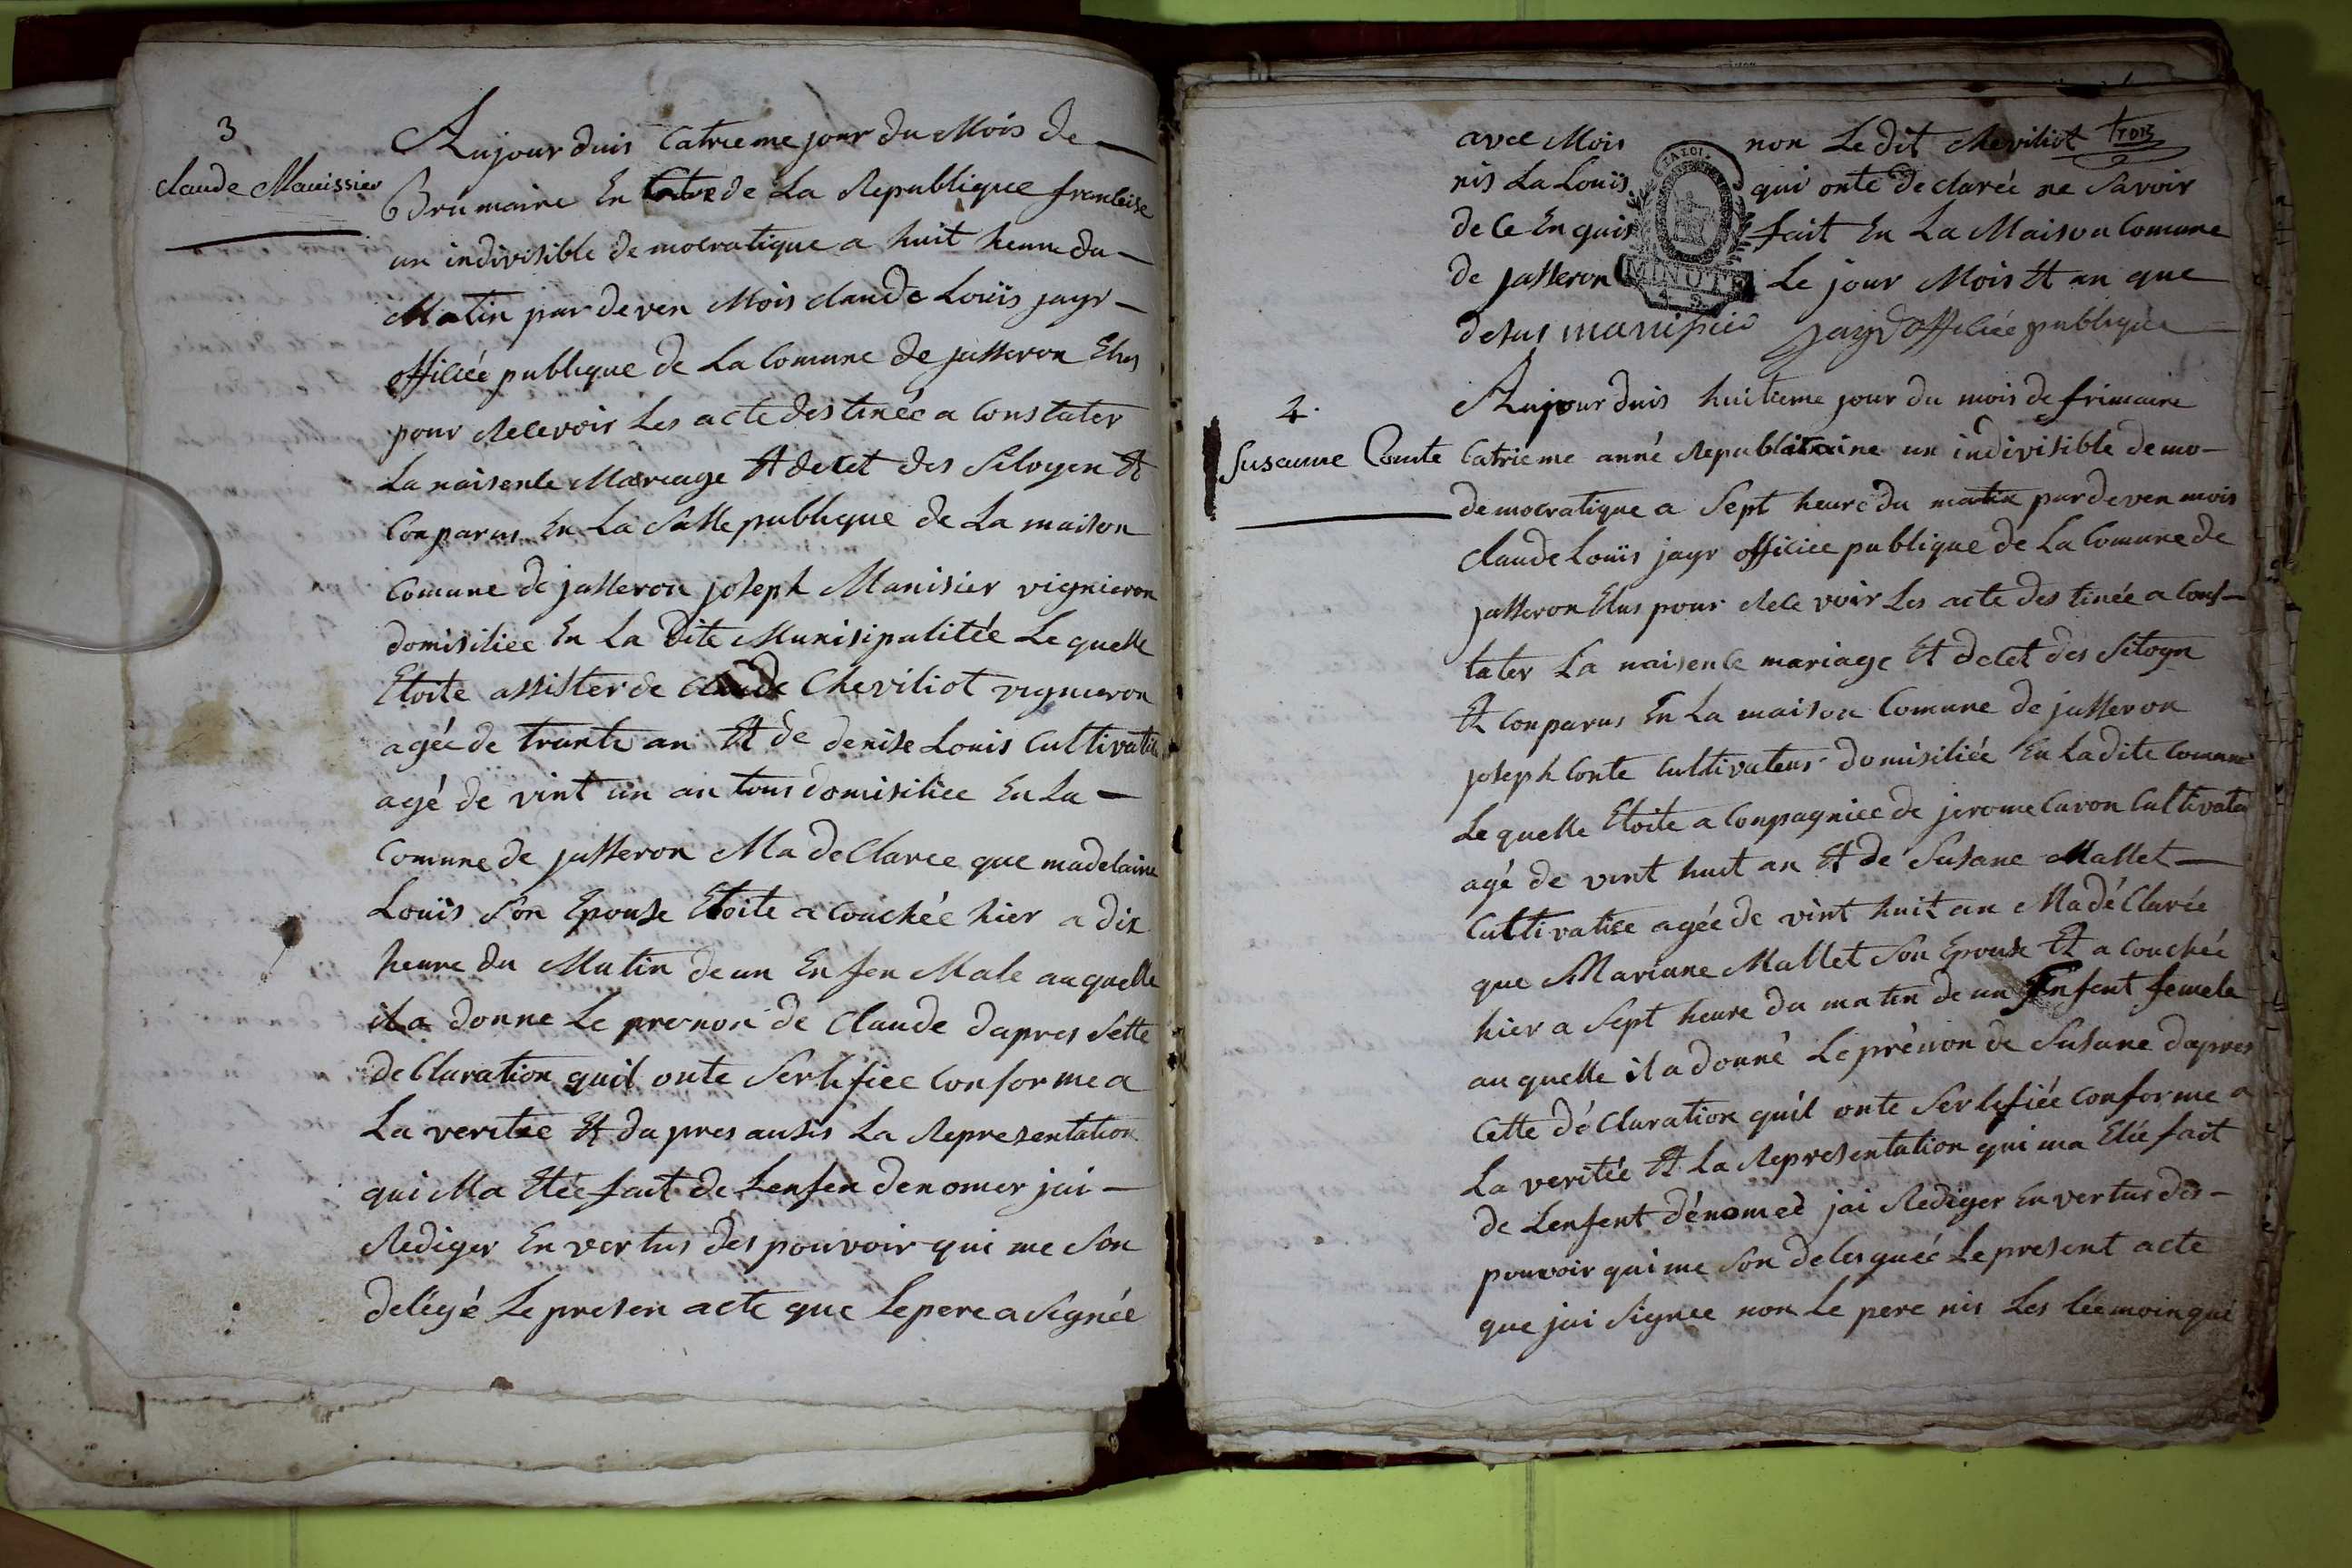 3
Claude Manissier
Aujourduis Catrieme jour du Mois de
Brumaire En Catre de La Republique francleise
un indivisible democratique a huit heure du
Matin par deven Mois claude Louïs jayr
officiée publique de La Comune de jasseron Elus
pour Recevoir Les acte destinée a Constater
La naisenle Mareage Et decet des Sitoyen Et
Conparus En La Salle publique de La maison
Comune de jasseron joseph Manisier vignieron
domisiliee En La dite Munisipalitée Le quelle
Etoite assister de Claude Cheviliot vignieron
agée de trante an Et de denise Louis Cultivatise
agé de vint un an tous domisiliee En La
Comune de jasseron Ma de Claree que madelaine
Louïs Son Epouse Etoite a Couchée hier a dix
heure du Matin de un Enfen Male au quelle
il a donne Le prenon de Claude dapres Sette
de Claration quil onte Sertifiee Conforme a
La veritee Et dapres ausis La Representation
qui Ma Etée fait de Lenfen denomer jai
Rediger En vertus des pouvoir qui me Son
delégé Le presen acte que Le pere a Signée
avec Mois non Le dit Cheviliot trois
nis La Louïs qui onte declarée ne Savoir
de Ce En quis fait En La Maison Comune
de jasseron Le jour Mois Et an que
MINUTE
desus manisier Jayr officiée publique
4.
Susanne Comte
Aujourduis huitieme jour du mois de frimaire
Catrieme anné Republicaine un indivisible demo-
democratique a Sept heure du matin par deven mois
Claude Louïs jayr officiee publique de La Comune de
jasseron Elus pour Recevoir Les acte destinée a Cons-
tater La naisenle mariage Et decet des Sitoyn
Et Conparus En La maison Comune de jasseron
joseph Conte Cultivateur domisiliée En La dite Comune
Le quelle Etoite a Conpagniee de jerome Caron Cultivateu
agé de vint huit an Et de Susane Mallet
Cultivatise agée de vint huit an Ma dé Clarée
que Mariane Mallet Son Epouse Et a Couchée
hier a Sept heure du matin de un Enfent femele
au quelle il a donné Le prénon de Susane dapres
Cette dé Claration quil onte Sertifiée Conforme a
La veritée Et La Representation qui ma Etée fait
de Lenfent dénomeé jai Rediger En vertus des
pouvoir qui me Son delesguéé Le present acte
que jai Signee non Le pere nis Les téemoin qui